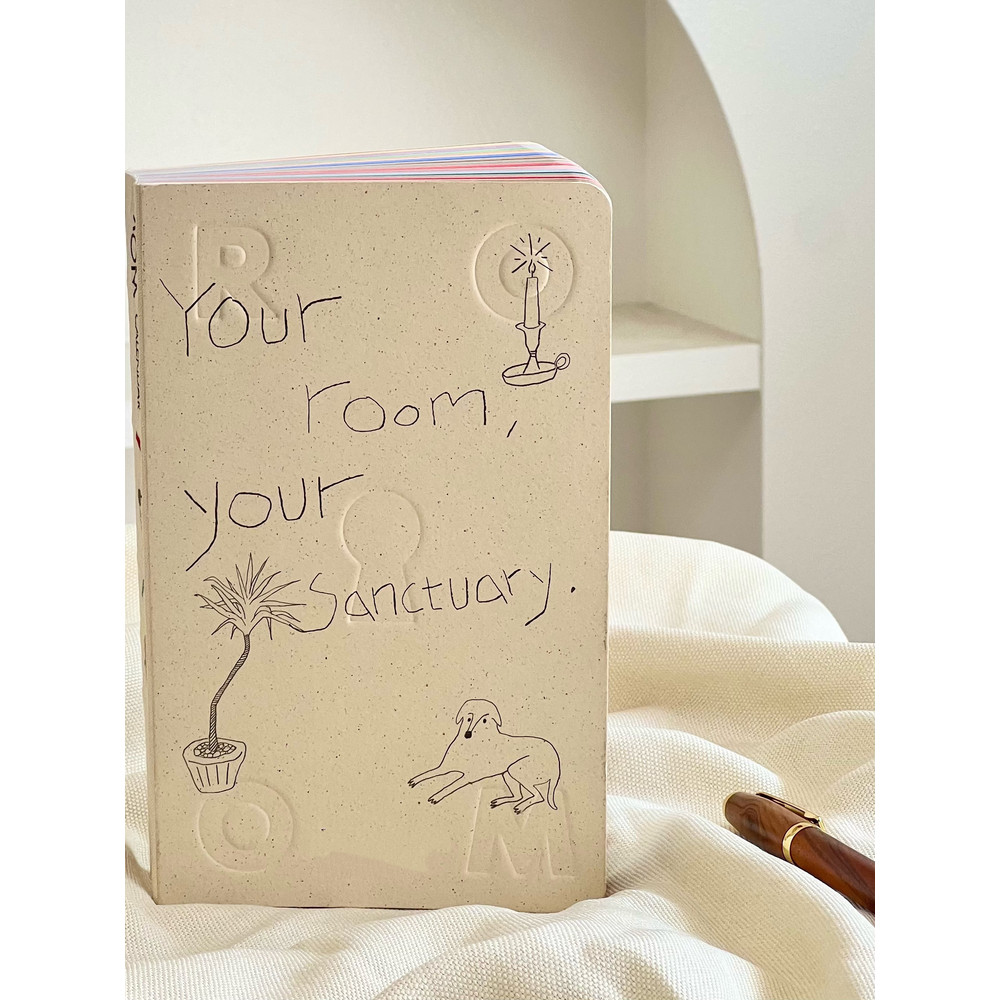 R O
Your
room,
your
Sanctuary.
O M